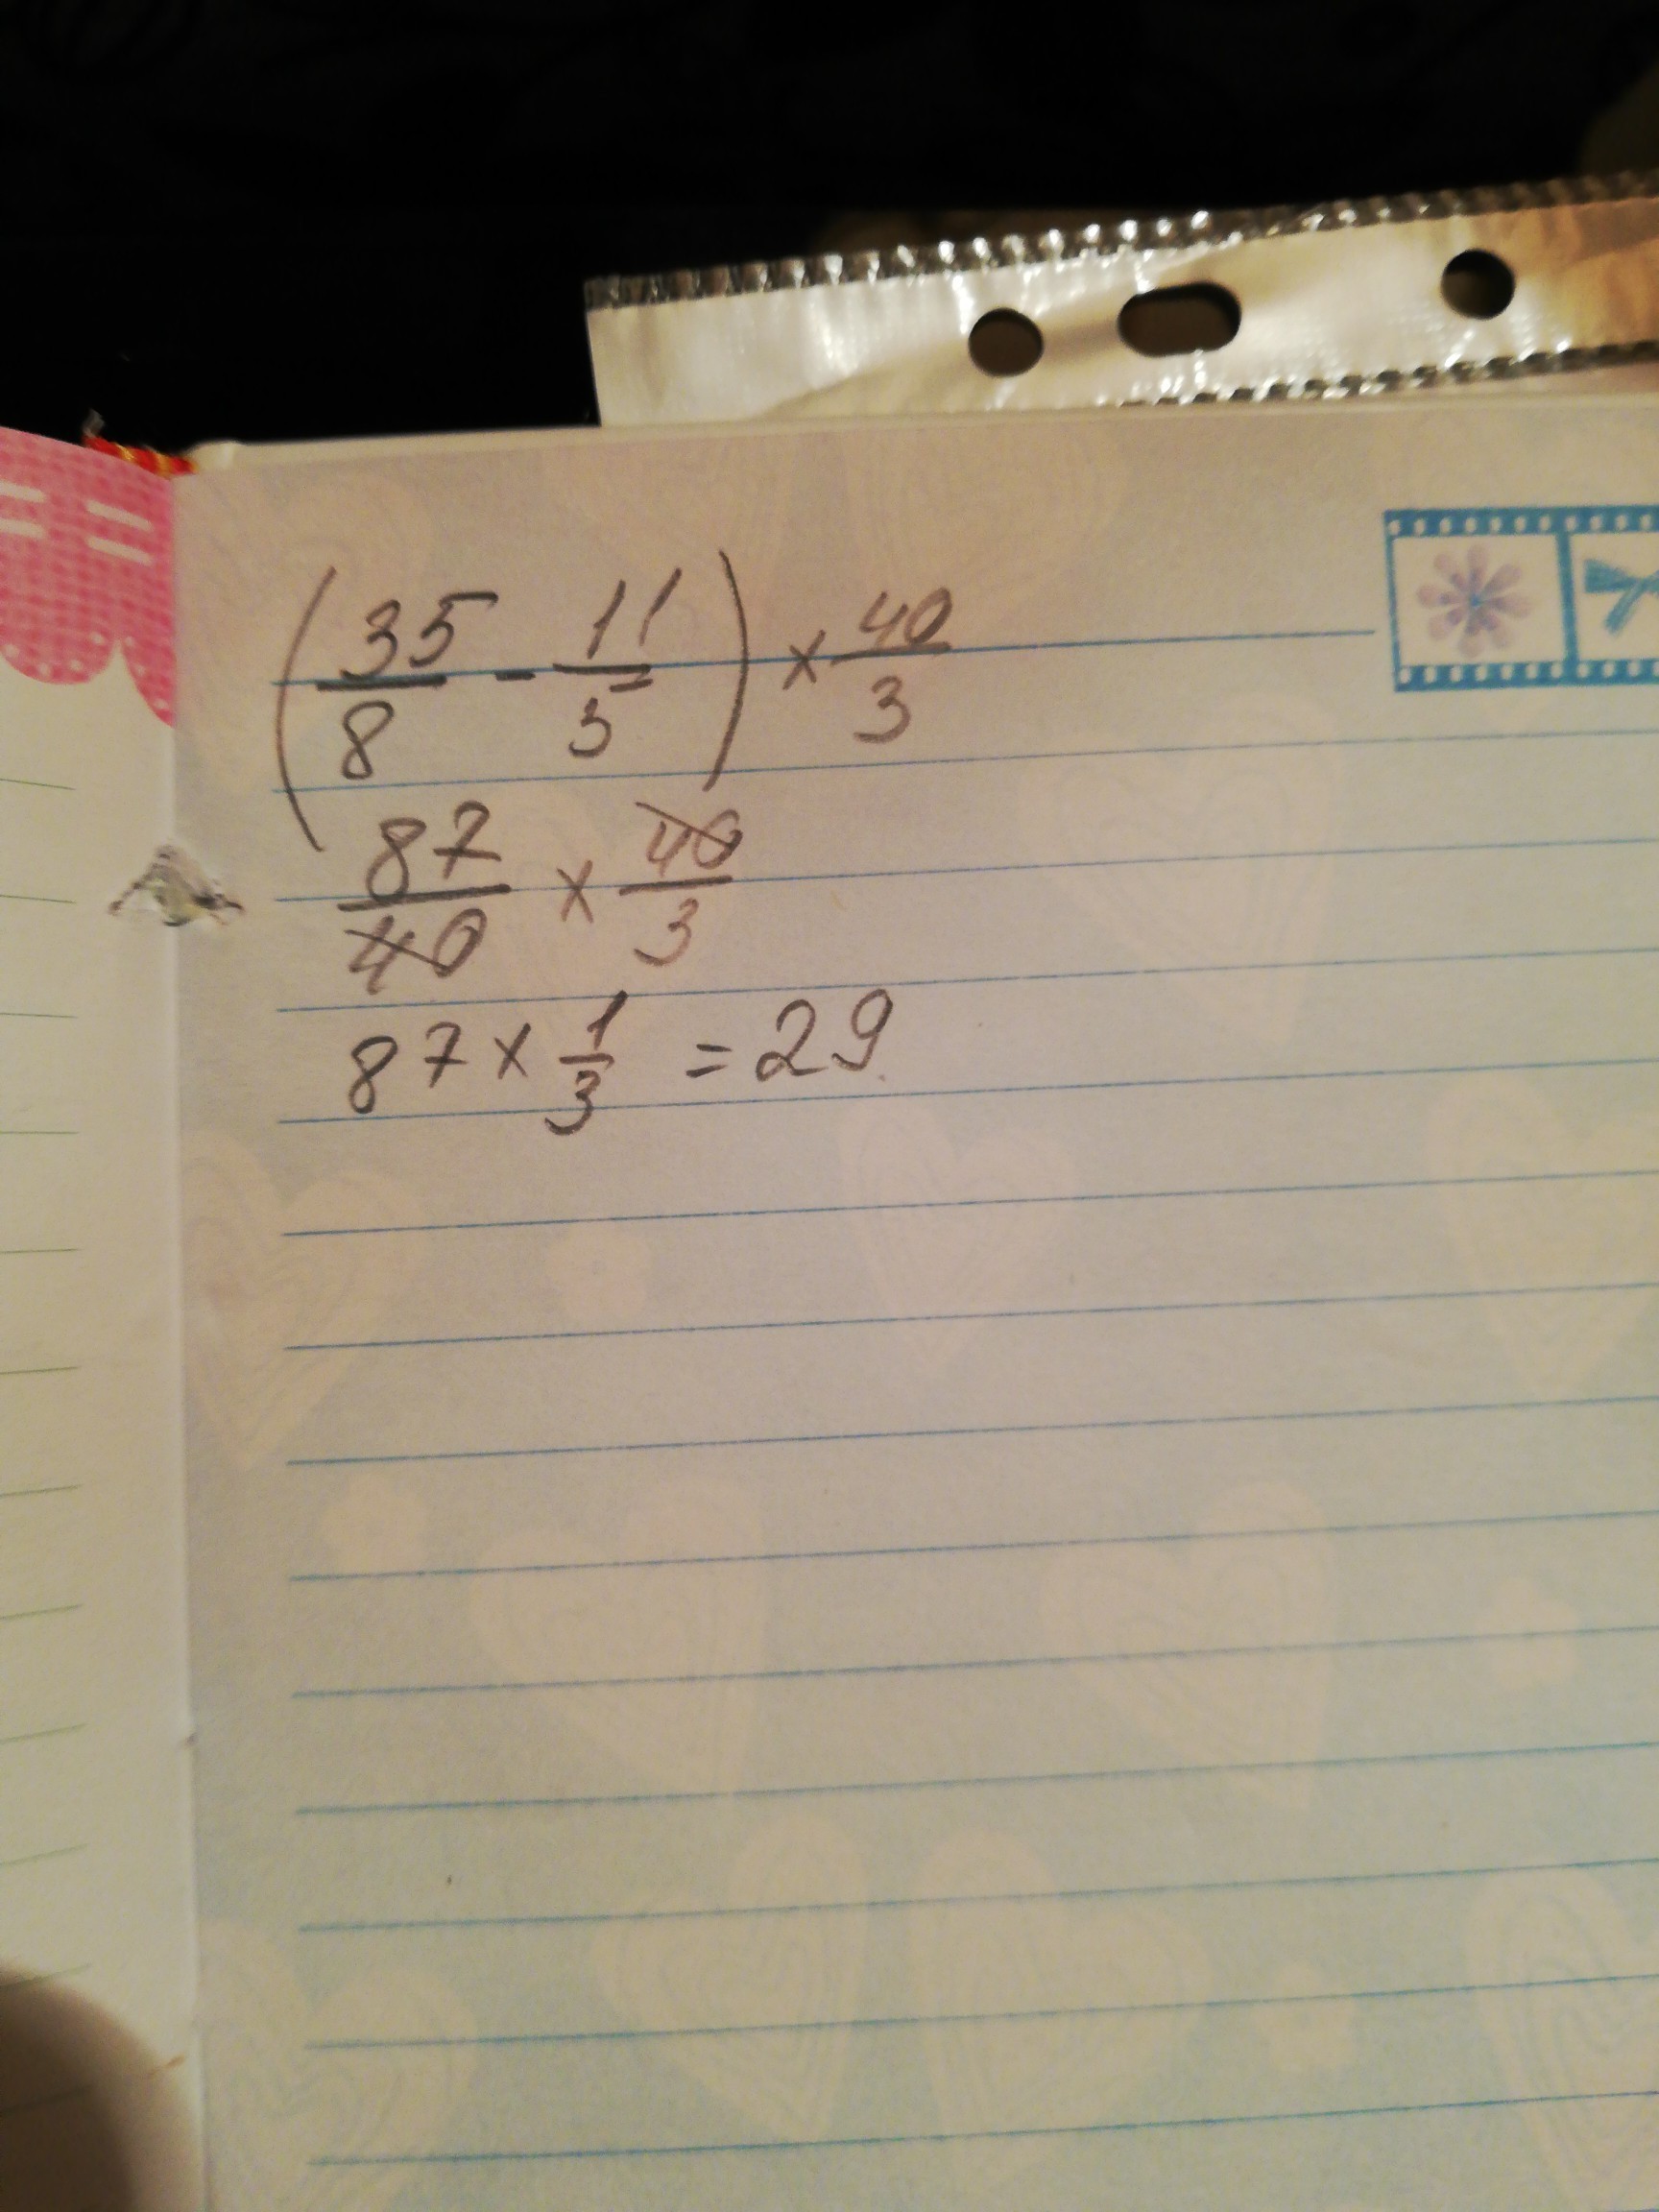 (35/8 - 11/5) × 40/3
87/40 × 40/3
87 × 1/3 = 29